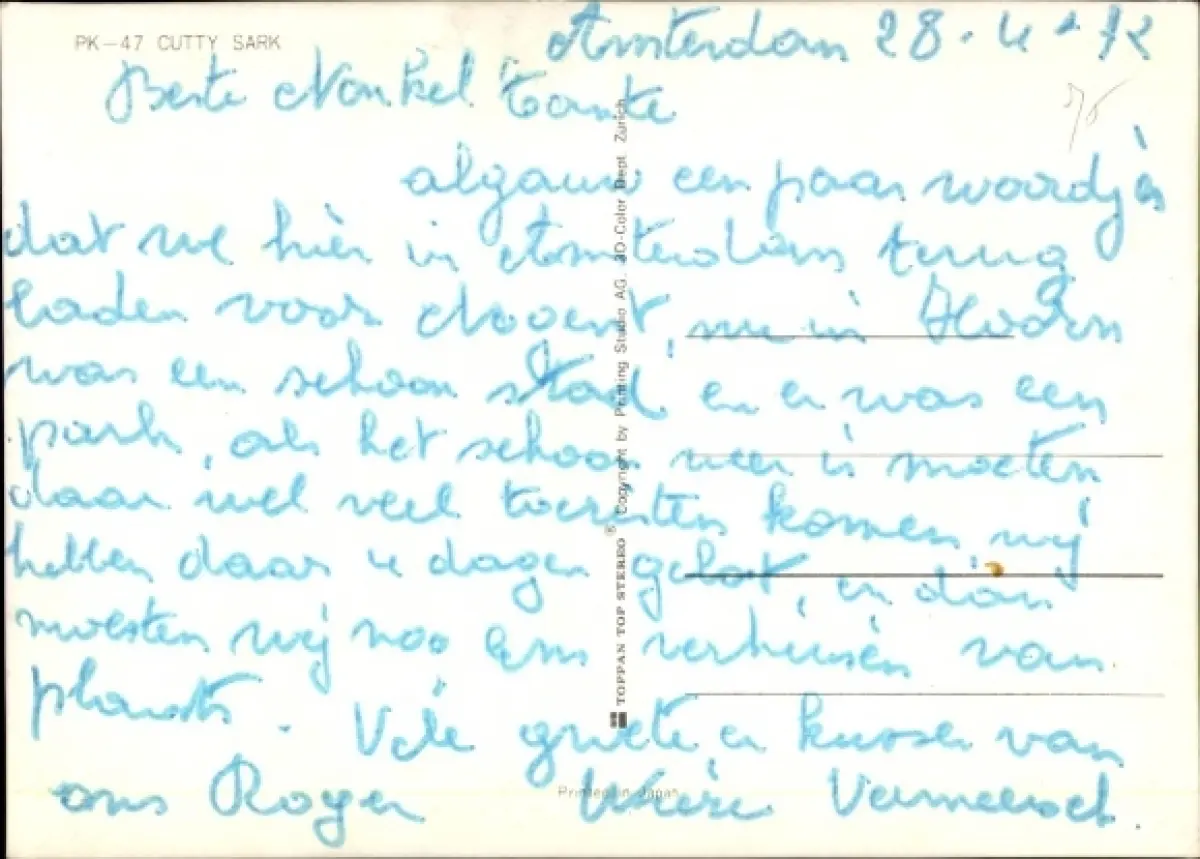 PK-47 CUTTY SARK
Amsterdam 28.4-72
75
Beste Nonkel Tante
algauw een paar woordjes
dat we hier in Amsterdam terug
laden voor, nu in Hoorn
was een schoon stad, en er was een
park, als het schoon weer is moeten
daar wel veel toeristen komen, wij
hebben daar 4 dagen gelost, en dan
moesten wij nog eens verhuisen van
plaats. Vele groeten en kussen van
ons Roger Vermeersch.
TOPPAN TOP STEREO ® Copyright by Printing Studio AG. 3D-Color Dept. Zurich
Printed in Japan